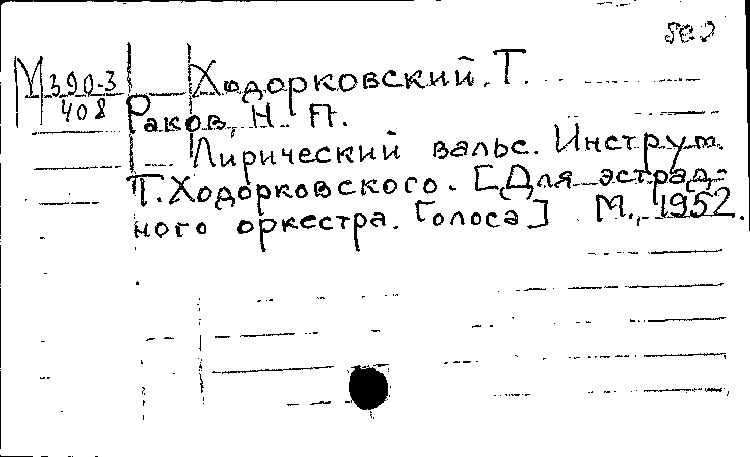 М 390-3
408
Ходорковский, Т.
Раков, Н. П.
Лирический вальс. Инструм.
Т. Ходорковского. [Для эстрад-
ного оркестра. Голоса] М., 1952.